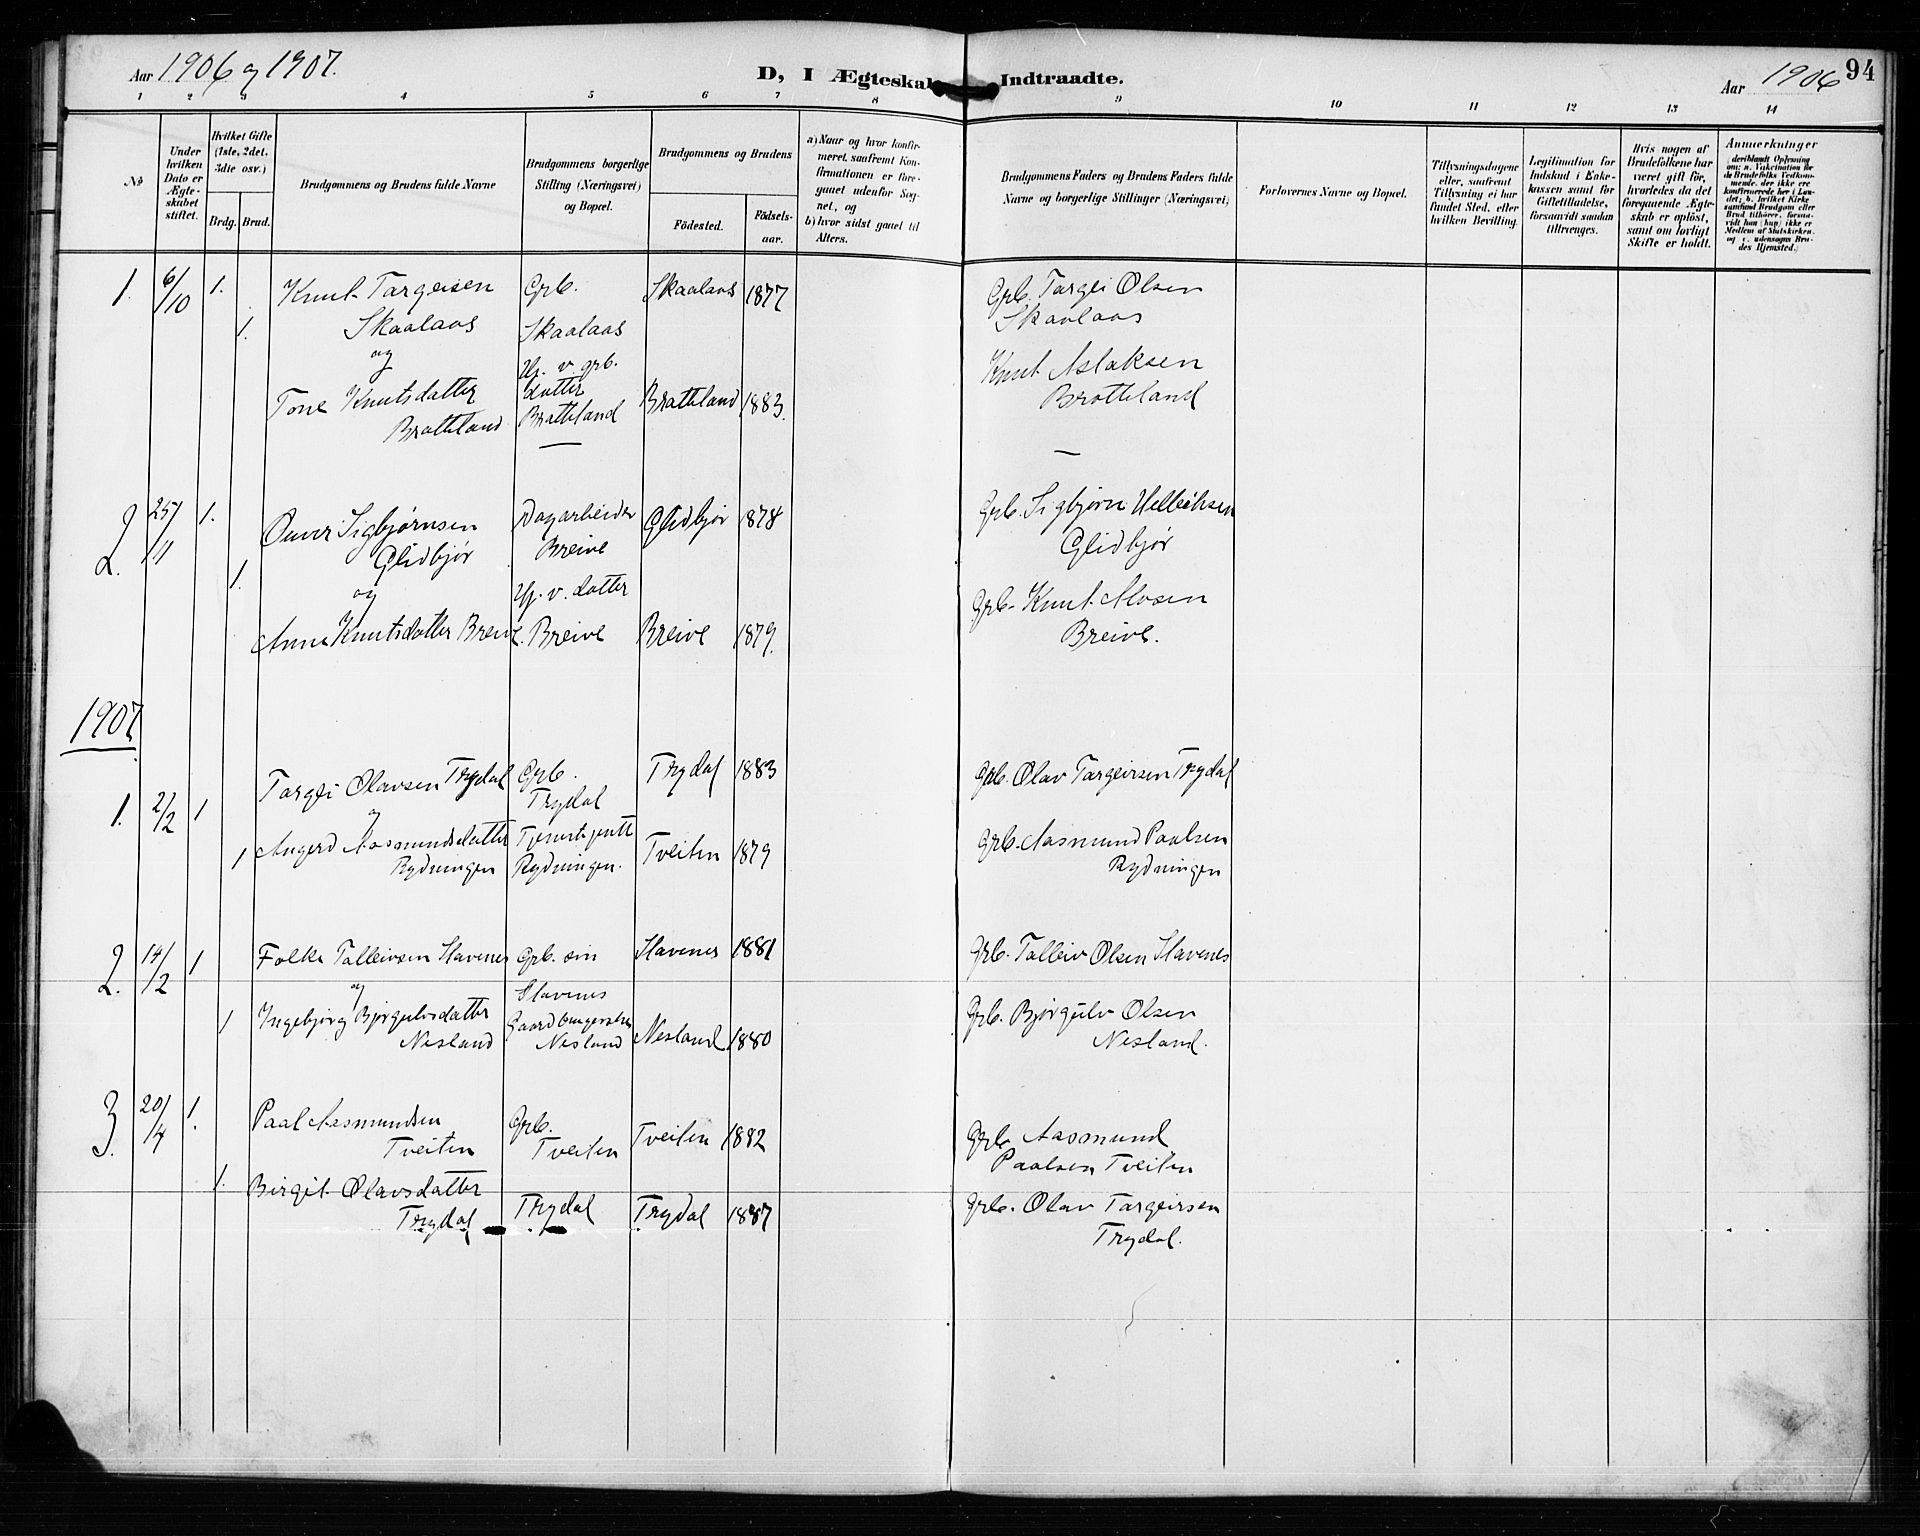 Aar 1906 og 1907.
D, I Ægteskab Indtraadte.
Aar 1906
94
1 2 3 4 5 6 7 8 9 10 11 12 13 14
No
Under hvilken Dato er Ægteskabet stiftet.
Hvilket Gifte (1ste, 2det, 3die osv.)
Brdg. Brud.
Brudgommens og Brudens fulde Navne
Brudgommens borgerlige Stilling (Næringsvei) og Bopæl.
Brudgommens og Brudens
Födested.
Födsels-aar.
a) Naar og hvor konfirmeret saafremt Konfirmationen er foregaaet udenfor Sognet, og
b) hvor sidst gaaet til Alters.
Brudgommens Faders og Brudens Faders fulde Navne og borgerlige Stillinger (Næringsvei)
Forlovernes Navne og Bopæl.
Tillysningsdagene eller, saafremt Tillysning ei har fundet Sted, efter hvilken Bevilling.
Legitimation for Indskud i Enkekassen samt for Giftetilladelse, forsaavidt saadan tiltrænges.
Hvis nogen af Brudefolkene har været gift før, hvorledes da det foregaaende Ægteskab er opløst, samt om lovligt Skifte er holdt.
Anmerkninger
(deriblandt Oplysning om: a. Vakcination for de Brudefolks Vedkommende, der ikke ere konfirmerede her i Landet; b. hvilket Kirkesamfund Brudgom eller Brud tilhører, forsaavidt han (hun) ikke er Medlem af Statskirken, og c. udensogns Brudes Hjemsted.
1. 6/10 1. Knut Targeisen Grb. Skaalaas 1877 Grb. Targei Olsen
1. Skaalaas Skaalaas Skaalaas
og Hj. v. grb. Knut Aslaksen
Tone Knutsdatter datter Bratteland 1883. Bratteland
Bratteland Bratteland
2. 25/11 1. Sigbjørnsen Dagarbeider Glidbjør 1878 Grb. Sigbjørn
Glidbjør Breive Glidbjør
1. og Hj. v. datter Grb. Knut Alvsen
Anne Knutsdatter Breive. Breive Breive 1879. Breive.
1907
1. 2/2 1 Targei Olavsen Trydal Grb. Trydal 1883 Grb. Olav Targeirsen Trydal
og Trydal
1 Angerd Aasmundsdatter Tjenestjente Tveiten 1879 Grb. Aasmund Paalsen
Rydningen Rydningen. Rydningen
2. 14/2 1 Folke Talleivsen Stavenes Grb. søn Stavenes 1881 Grb. Talleiv Olsen Stavenes
og Stavenes
1 Ingebjørg Bjørgulvsdatter Nesland 1880 Grb. Bjørgulv Olsen
Nesland Nesland Nesland.
3. 20/4 1. Paal Aasmundsen Grb. Tveiten 1882 Grb. Aasmund
Tveiten Tveiten Paalsen Tveiten
1. Birgit Olavsdatter Trydal Trydal 1887 Grb. Olav Targeirsen
Trydal Trydal.